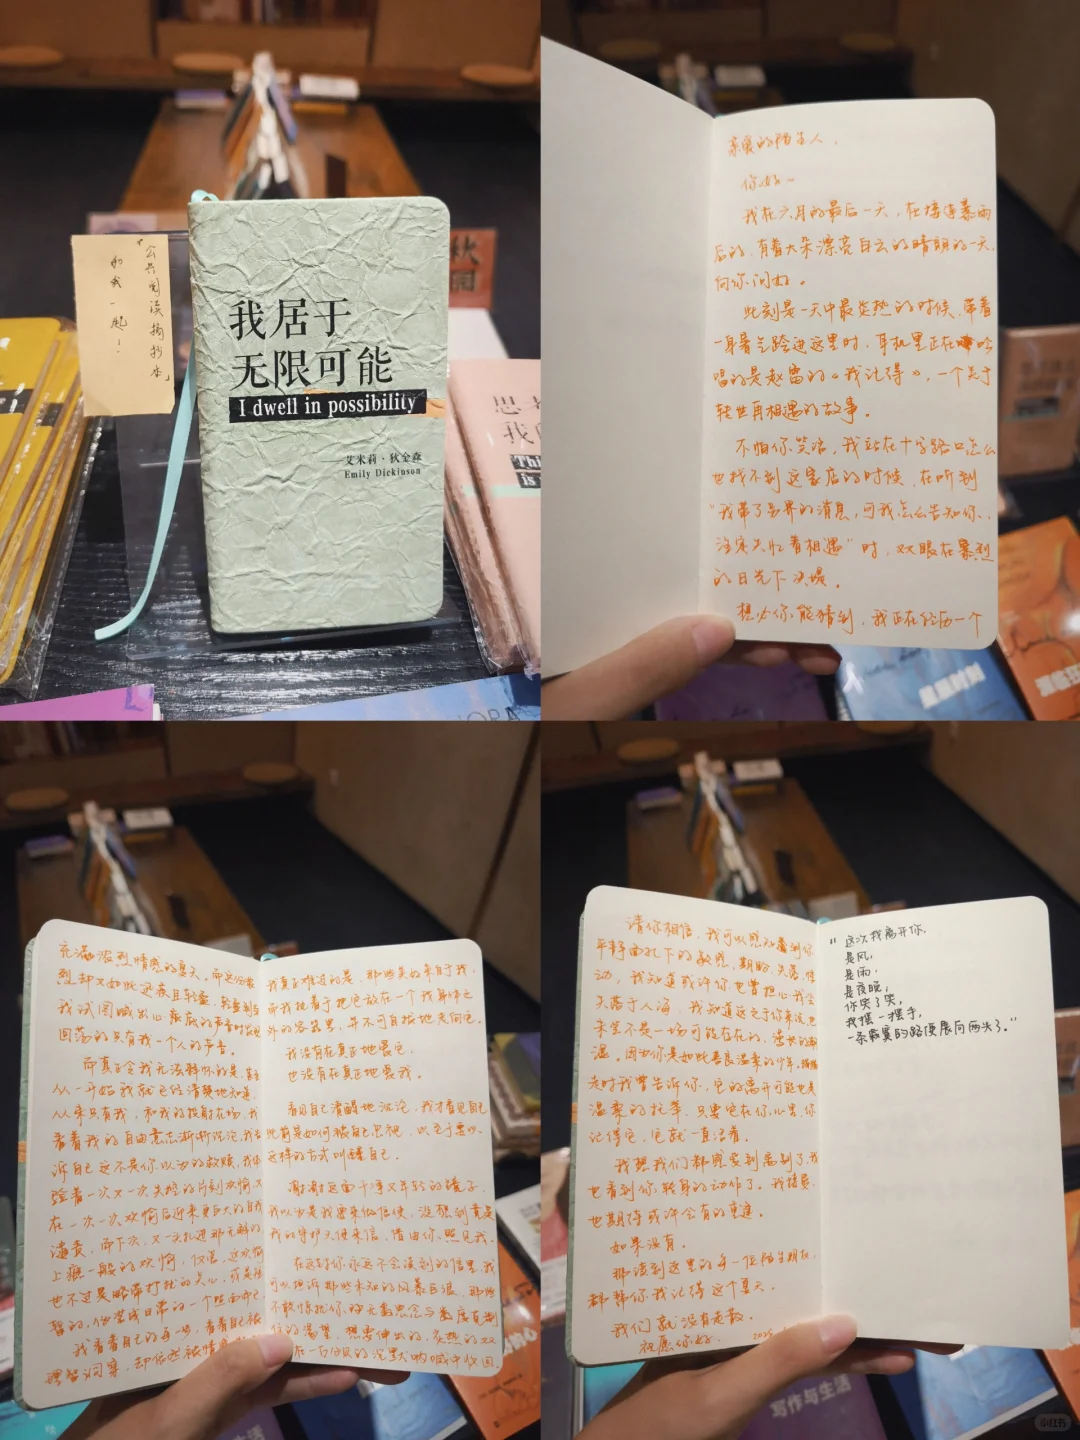 “公共阅读摘抄本”
和我一起！
我居于
无限可能
I dwell in possibility
艾米莉·狄金森
Emily Dickinson
秋
园
思
我
Thi
is
亲爱的陌生人，
你好~
我在六月的最后一天，在接连暴雨
后的，有着大朵漂亮白云的晴朗的一天，
向你问好。
此刻是一天中最炎热的时候，带着
一身暑气踏进这里时，耳机里正在吟
唱的是赵雷的《我记得》，一个关于
转世再相遇的故事。
不怕你笑话，我站在十字路口怎么
也找不到这家店的时候，在听到
“我带了另界的消息，可我怎么告知你，
注定失忆着相遇”时，双眼在暴烈
的日光下决堤。
想必你能猜到，我正在经历一个
充满浓烈情感的夏天，而这份浓
烈却又如此迅疾且轻盈，轻盈到当
我试图喊出心底的声音时
回荡的只有我一个人的声音。
而真正令我无法释怀的是，
从一开始我就已经清楚地知道，
从来只有我，和我的投射在场，我
看着我的自由意志渐渐沉沦，我告
诉自己这不是你以为的救赎，我体
验着一次又一次失控的片刻欢愉，又
在一次一次欢愉后迎来更巨大的自我
谴责，而下次，又一头扎进那无解的
上瘾一般的欢愉，
也不过是略带打扰的关心，或是短
暂的，伪装成日常的一个
我看着自己的每一步，看着自己被
却依然被情
我真正难过的是，那些美的来自于我，
而我执着于把它放在一个我身体之
外的容器里，并不可自拔地走向它。
我没有在真正地爱它，
也没有在真正地爱我。
看见自己清醒地沉沦，我才看见自己
此前是如何被自己忽视，以至于要以
这样的方式叫醒自己。
谢谢这面干净又年轻的镜子，
我以为是我要来做信使，没想到竟是
我的守护天使来信，借由你，照见我。
在这封你永远不会读到的信里，我
可以坦诉那些未知的风暴巨浪，那些
不敢惊扰你的无数思念与
的渴望，想要伸出的，炙热的双
在一百分贝的沉默呐喊中收回
请你相信，我可以感知看到你
平静面孔下的敏感，期盼，失落，悸
动，我知道或许你也曾担心我会
失落于人海，我知道这之于你来说也
未尝不是一场可能存在的，漫长的潮
湿。因为你是如此善良温柔的少年，
走时我曾告诉你，它的离开可能也是
温柔的托举，只要它在你心里，你
记得它，它就一直活着。
我想我们都感受到离别了，我
也看到你转身的动作了。我接受，
也期待或许会有的重逢。
如果没有，
那读到这里的每一位陌生朋友，
都替你我记得这个夏天。
我们就没有走散。
祝愿你好。
“这次我离开你，
是风，
是雨，
是夜晚；
你笑了笑，
我摆一摆手，
一条寂寞的路便展向两头了。”
写作与生活
小红书